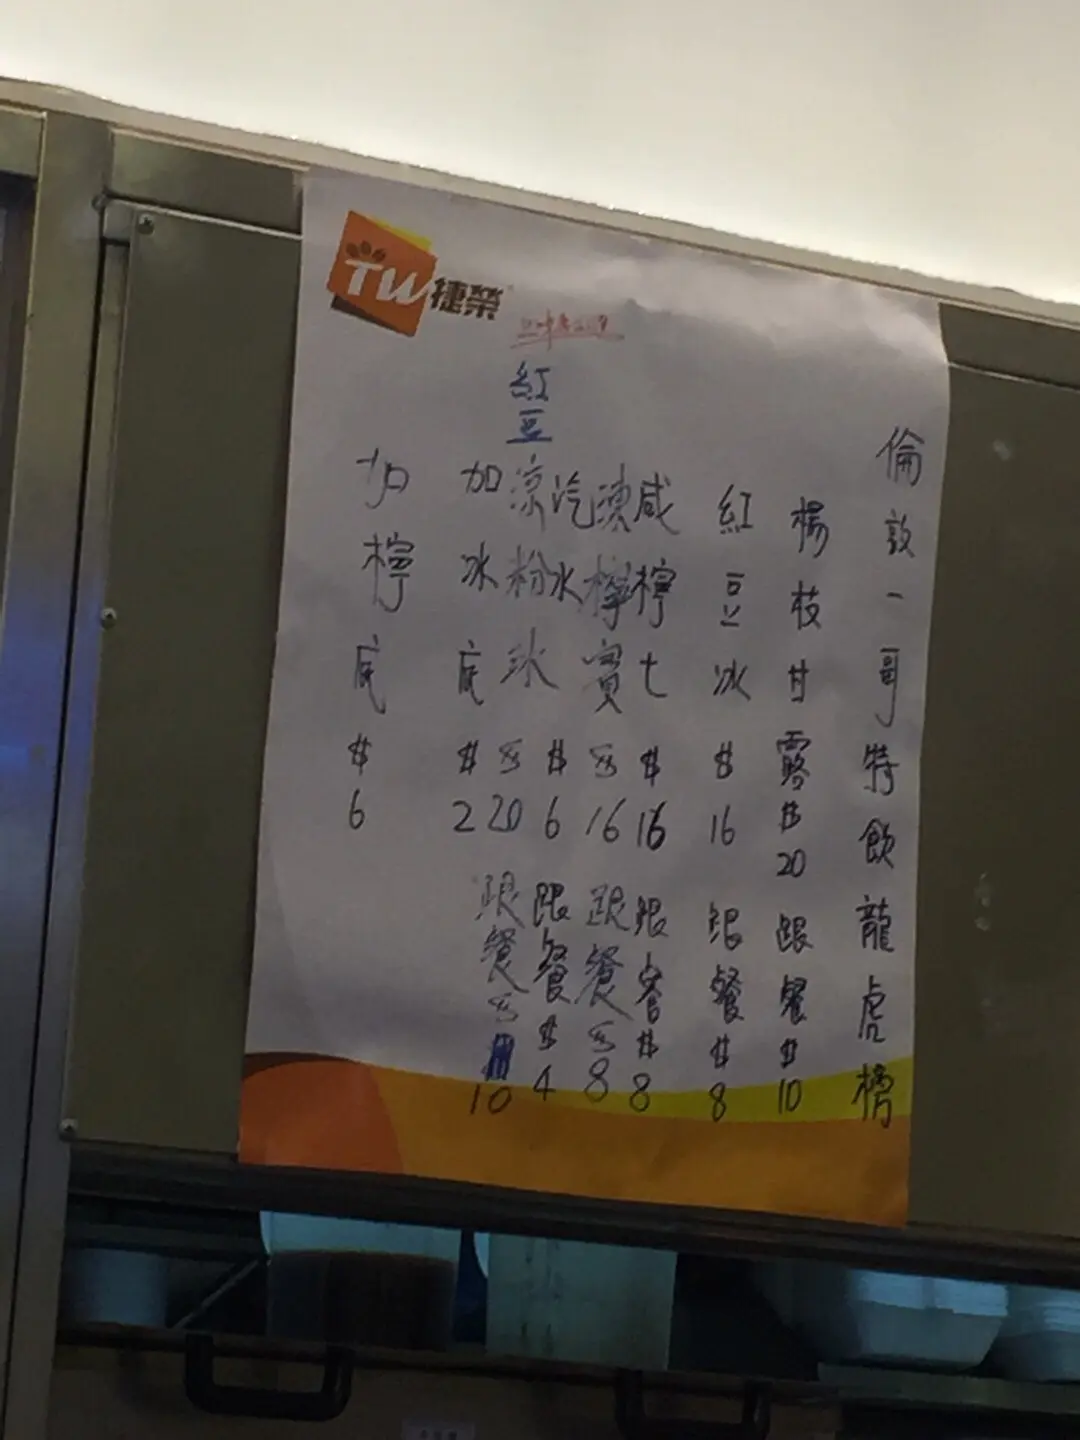 TW捷榮
倫敦一哥特飲龍虎榜
楊枝甘露$20 跟餐$10
紅豆冰$16 跟餐$8
咸檸七$16 跟餐$8
澳檸賓$16 跟餐$8
汽水$6 跟餐$4
紅豆涼粉冰$20 跟餐$10
加冰底$2
加檸底$6